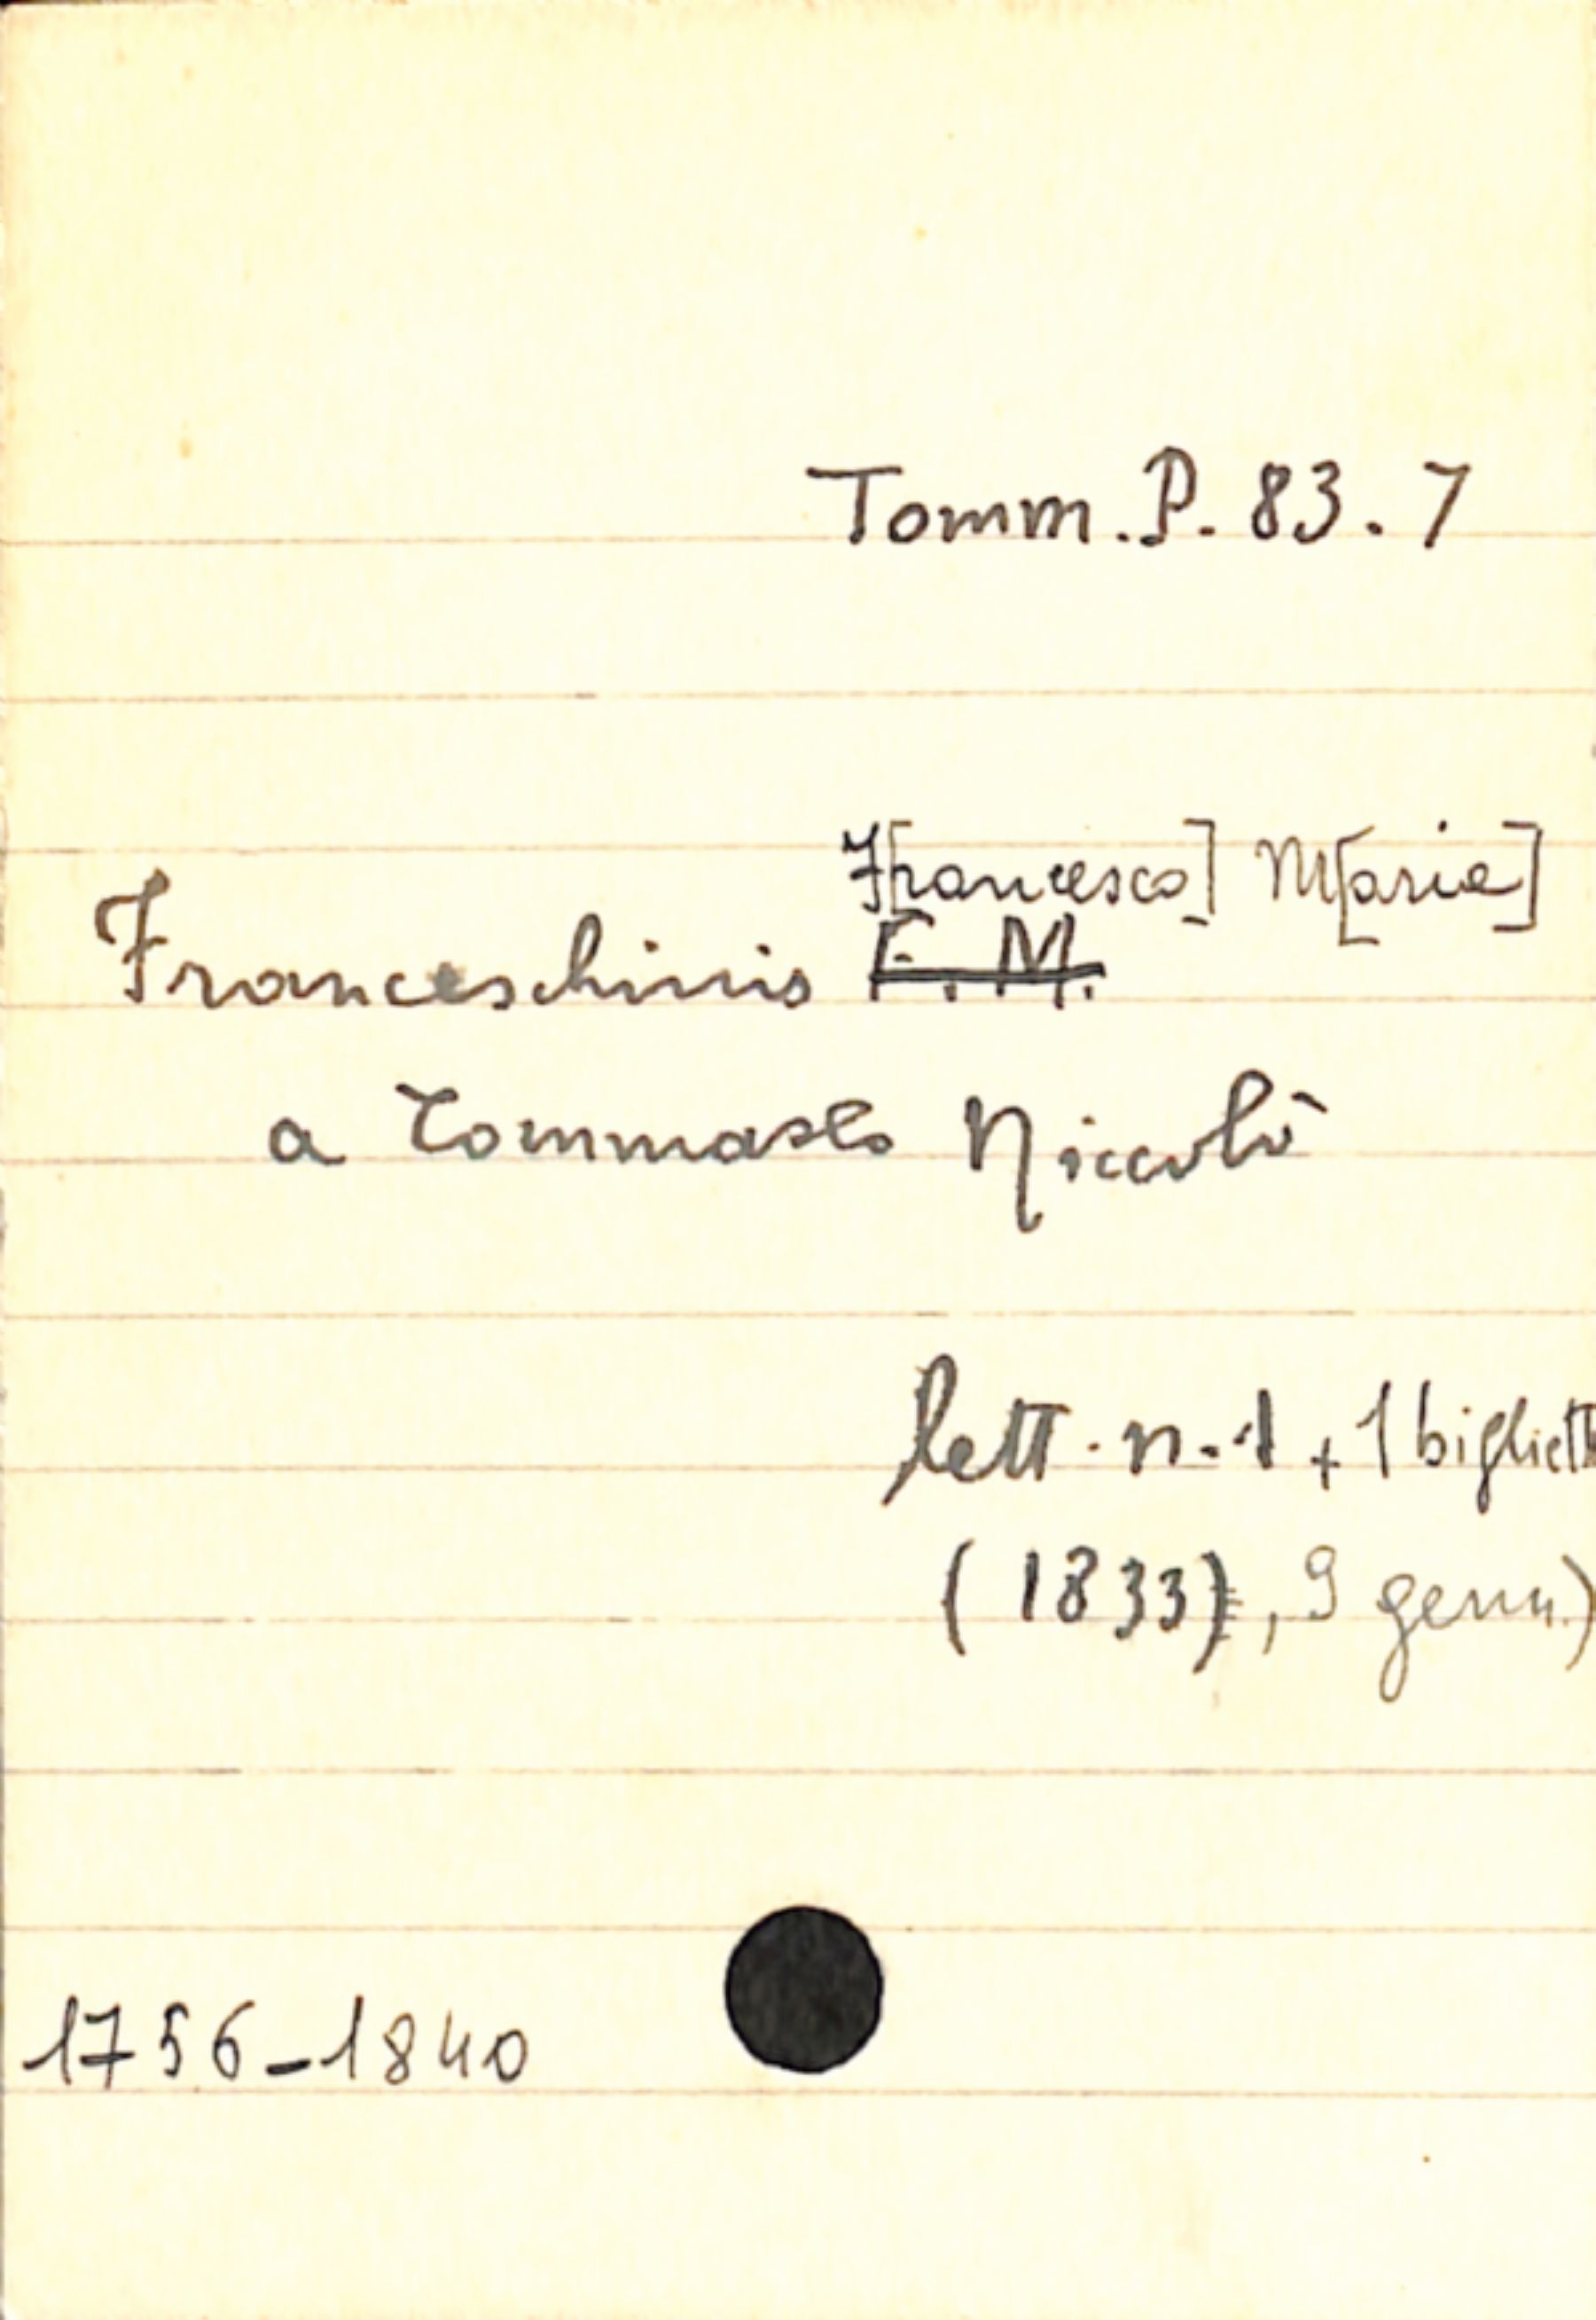 Tomm. P. 83. 7
F[rancesco] M[aria]
Franceschinis F. M.
a Tommaseo Niccolò
lett. n. 1 + 1 bigliett
(1833), 9 genn.)
1756-1840